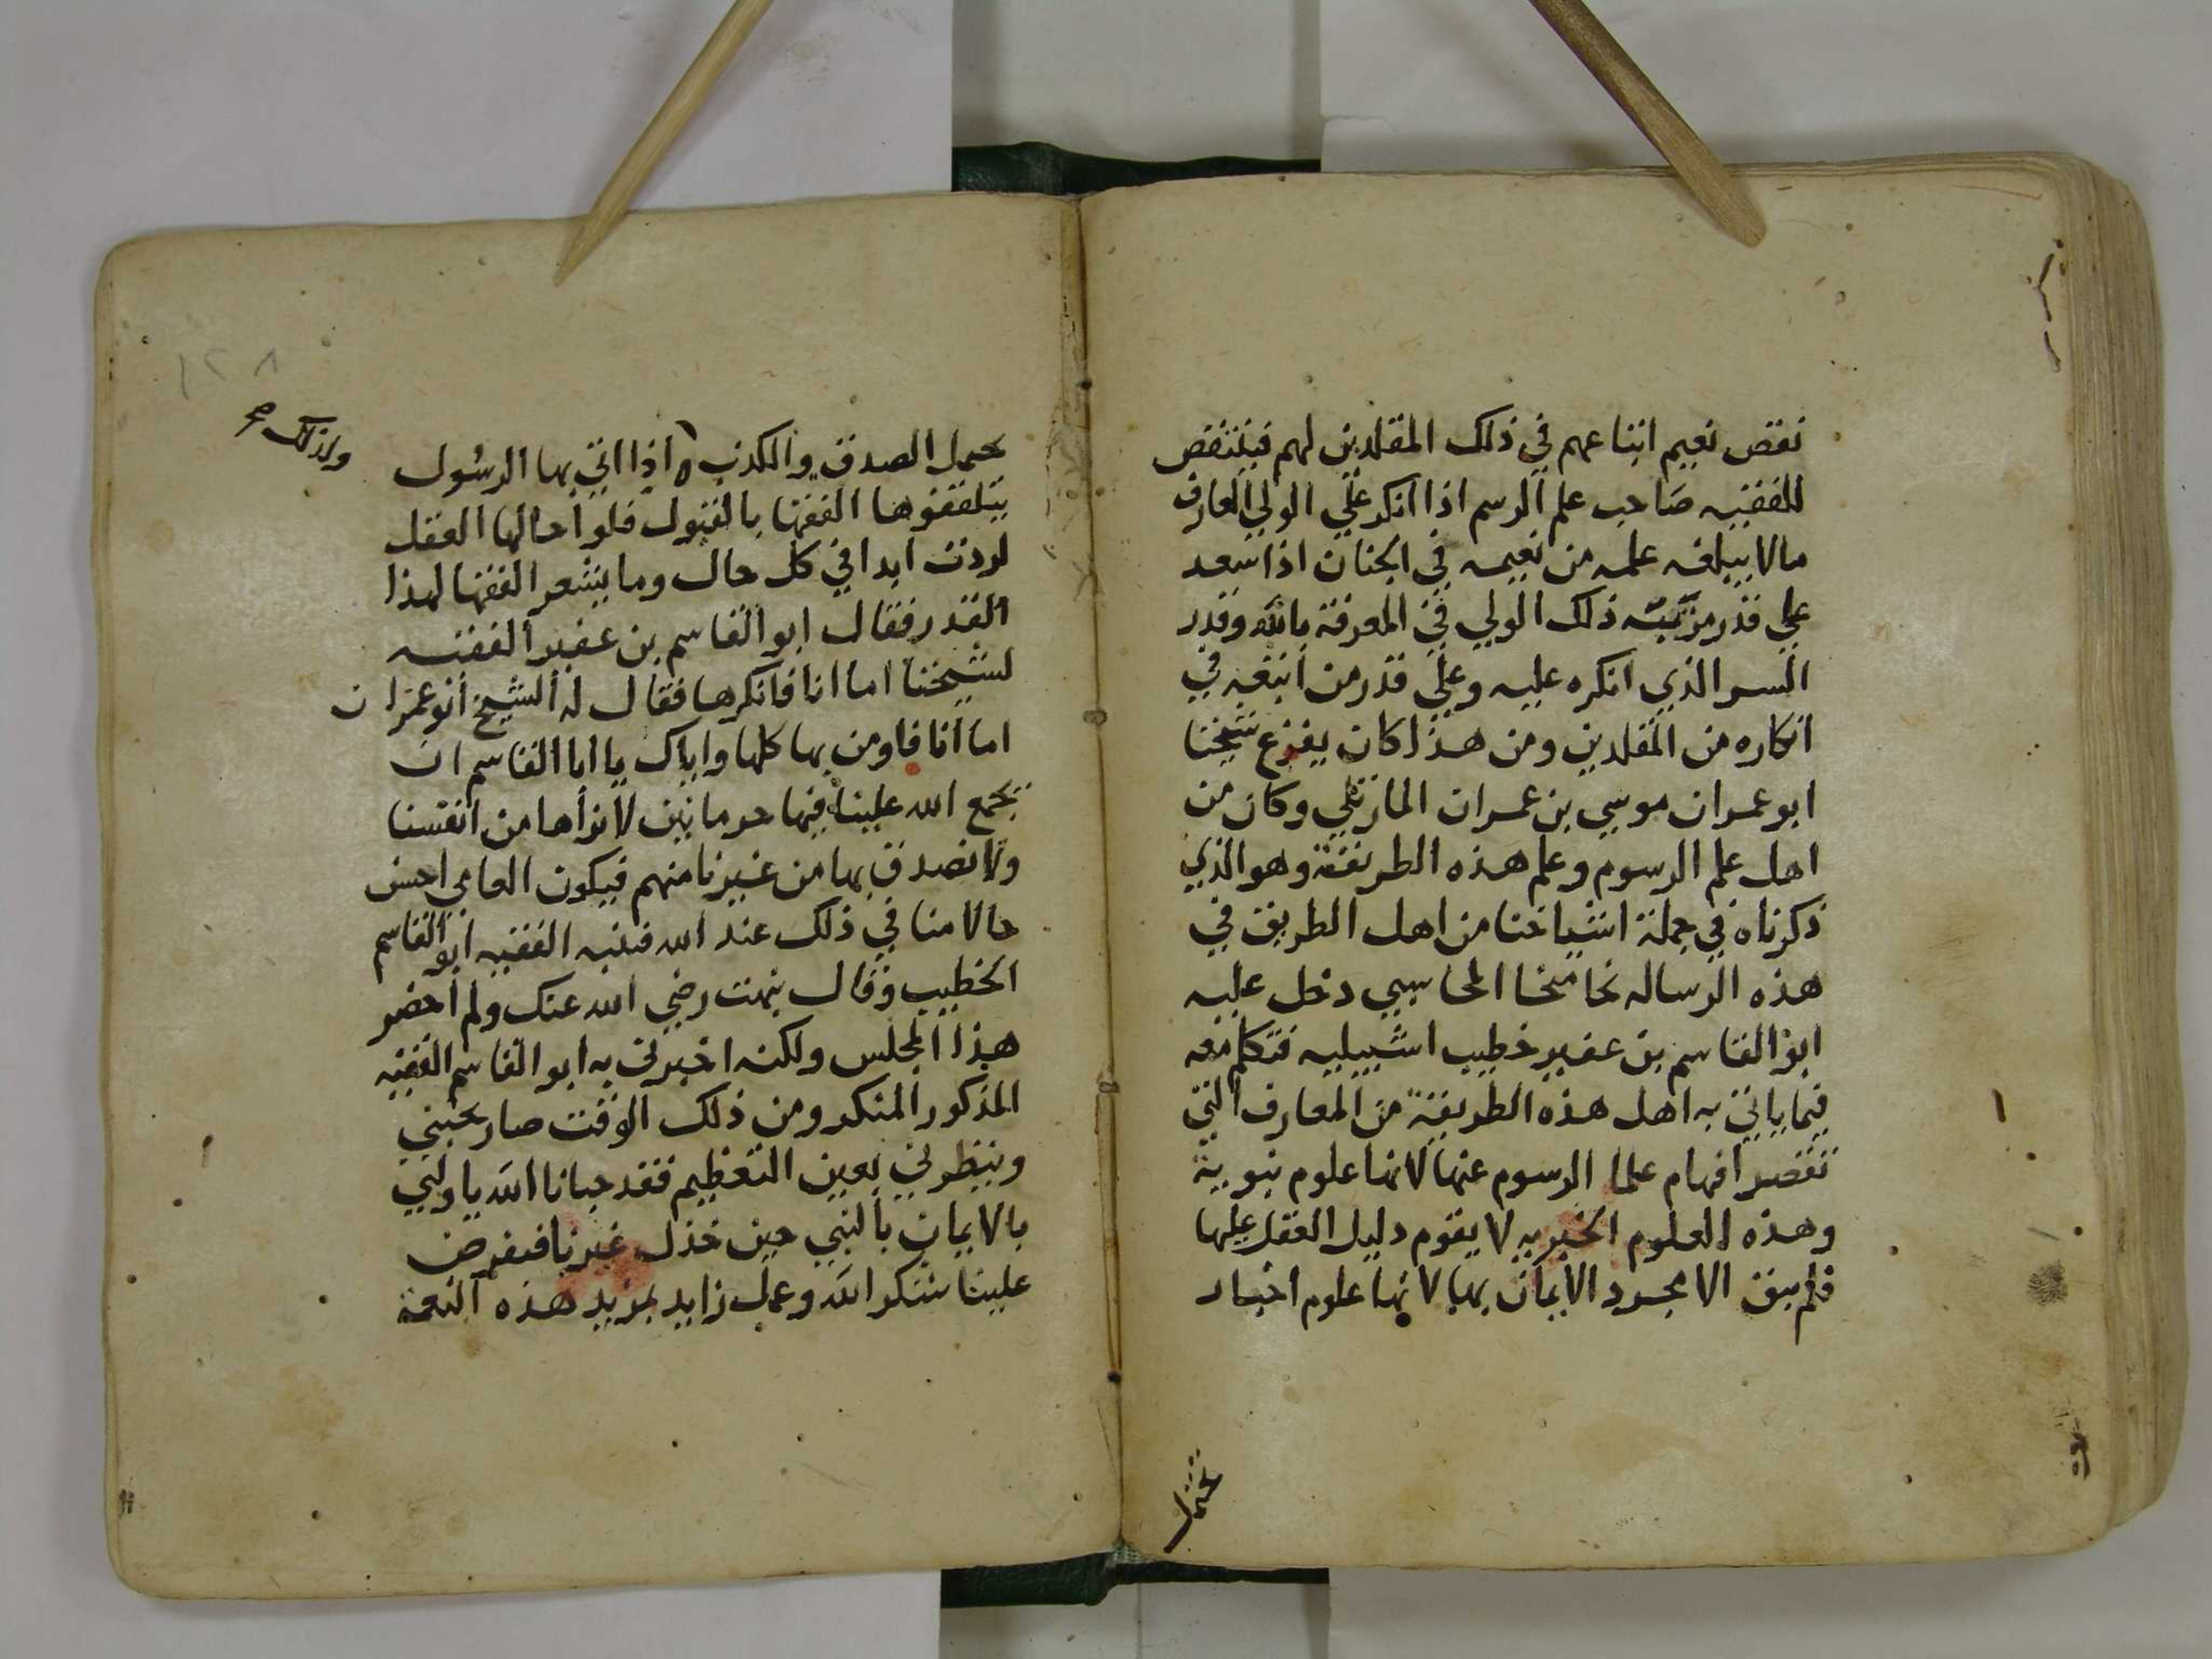 نقص نعيم اتباعهم في ذلك المقلدين لهم فينتقص
للفقيه صاحب علم الرسم اذا انكر علي الولي العارف
مالا يبلغه علمه من نعيمه في الجنان اذا سعد
علي قدر مرتبة ذلك الولي في المعرفة بالله وقدر
السر الذي انكره عليه وعلي قدر من اتبعه في
انكاره من المقلدين ومن هذا كان يفزع شيخنا
ابو عمران موسي بن عمران المارتلي وكان من
اهل علم الرسوم وعلم هذه الطريقة وهو الذي
ذكرناه في جملة اشياخنا من اهل الطريق في
هذه الرساله نحا منحا المحاسبي دخل عليه
ابو القاسم بن عفير خطيب اشبيليه فتكلم معه
فيما ياتي به اهل هذه الطريقة من المعارف التي
تقصر افهام علما الرسوم عنها لانها علوم نبوية
وهذه العلوم الخبريه لا يقوم دليل العقل عليها
فلم يبق الا مجرد الايمان بها لانها علوم اخبار
تحتمل
١٢٨
ولذلك صح
يحتمل الصدق والكذب اذا اتي بها الرسول
يتلقفوها الفقها بالقبول فلو احالها العقل
لردت ابدا في كل حال وما يشعر الفقها لهذا
القدر فقال ابو القاسم بن عفير الفقيه
لشيخنا اما انا فانكرها فقال له الشيخ ابو عمران
اما انا فاومن بها كلها واياك يا ابا القاسم ان
يجمع الله علينا فيها حرمانين لا نراها من انفسنا
ولا نصدق بها من غيرنا منهم فيكون العامي احسن
حالا منا في ذلك عند الله فتنبه الفقيه ابو القاسم
الخطيب وقال نبهت رضي الله عنك ولم احضر
هذا المجلس ولكنه اخبرني به ابو القاسم الفقيه
المذكور المنكر ومن ذلك الوقت صار يحبني
وينظرني بعين التعظيم فقد حبانا الله يا وليي
بالايمان بالنبي حين خذل غيرنا فتفرض
علينا شكر الله وعمل زايد لمزيد هذه النعمة